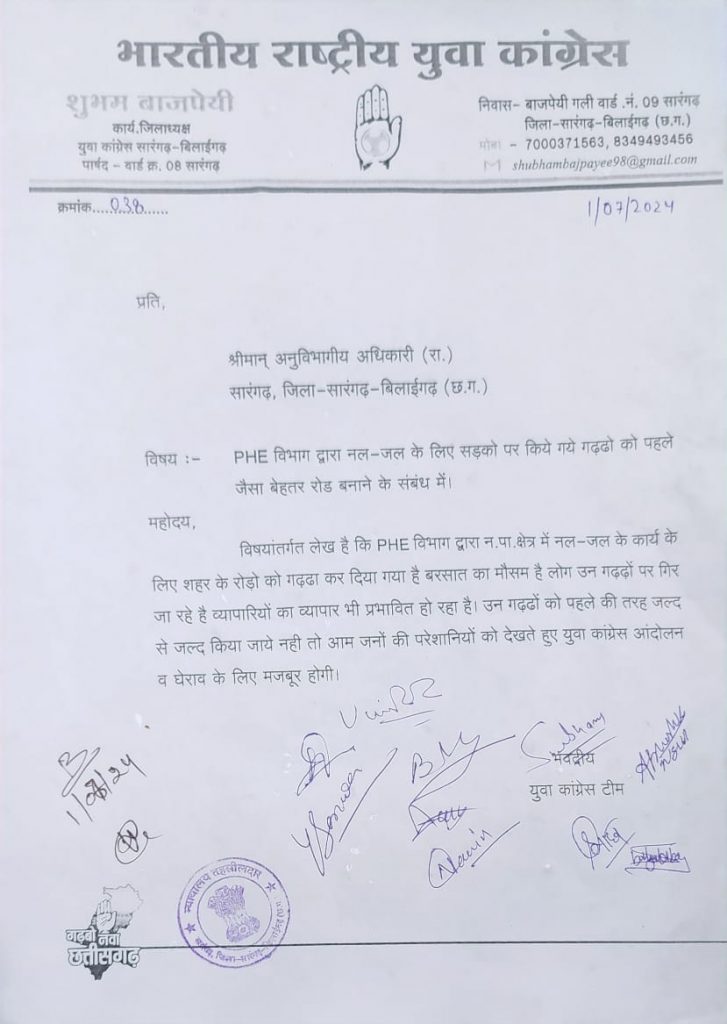 भारतीय राष्ट्रीय युवा कांग्रेस
शुभम बाजपेयी
कार्य.जिलाध्यक्ष
युवा कांग्रेस सारंगढ़-बिलाईगढ़
पार्षद - वार्ड क्र. 08 सारंगढ़
निवास- बाजपेयी गली वार्ड .नं. 09 सारंगढ़
जिला-सारंगढ़-बिलाईगढ़ (छ.ग.)
मोबा - 7000371563, 8349493456
shubhambajpayee98@gmail.com
क्रमांक.....038......
1/07/2024
प्रति,
श्रीमान् अनुविभागीय अधिकारी (रा.)
सारंगढ़, जिला-सारंगढ़-बिलाईगढ़ (छ.ग.)
विषय :- PHE विभाग द्वारा नल-जल के लिए सड़को पर किये गये गढ़ढो को पहले
जैसा बेहतर रोड बनाने के संबंध में।
महोदय,
विषयांतर्गत लेख है कि PHE विभाग द्वारा न.पा.क्षेत्र में नल-जल के कार्य के
लिए शहर के रोड़ो को गढ़ढा कर दिया गया है बरसात का मौसम है लोग उन गढ़ढ़ों पर गिर
जा रहे है व्यापारियों का व्यापार भी प्रभावित हो रहा है। उन गढ़ढों को पहले की तरह जल्द
से जल्द किया जाये नही तो आम जनों की परेशानियों को देखते हुए युवा कांग्रेस आंदोलन
व घेराव के लिए मजबूर होगी।
Subham
भवदीय
युवा कांग्रेस टीम
Abhishek
Navin
न्यायालय तहसीलदार
गढ़बो नवा
छत्तीसगढ़